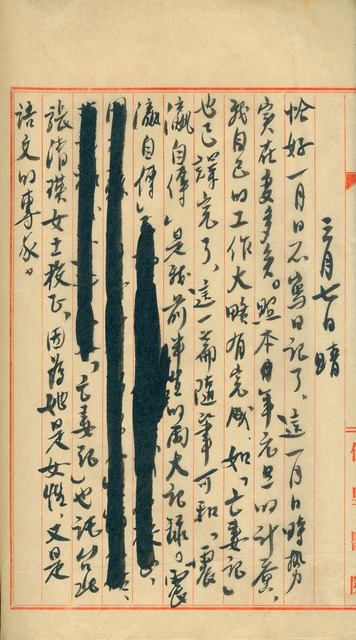 三月七日 晴
恰好一月日不寫日記了、這一月日時勢
實在變多矣。照本年元旦的計畫、
我自己的工作大略有完成、如「亡妻記」
也已譯完了、這一篇隨筆可和「震
瀛自傳」是我前半生的兩大記錄。「震
瀛自傳」
「亡妻記」也託台北
張清漢女士校正、因為她是女性、又是
語文的專家。